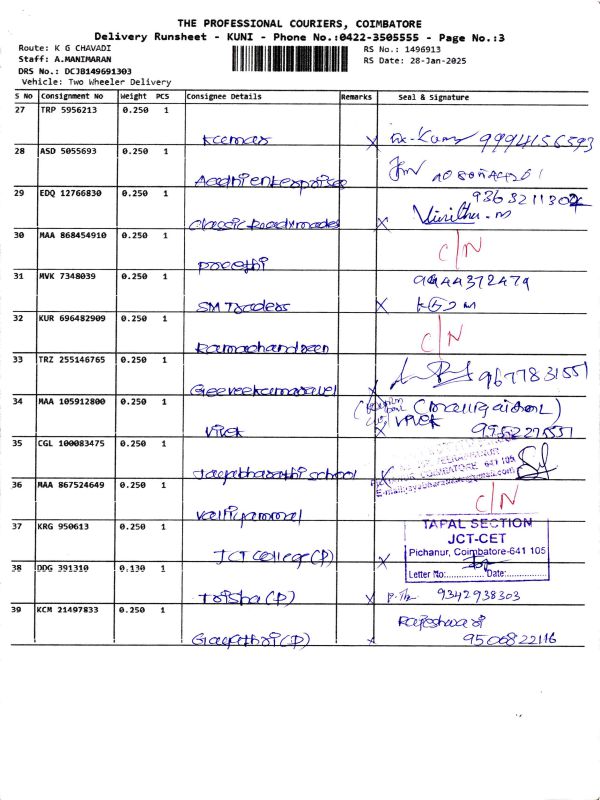 THE PROFESSIONAL COURIERS, COIMBATORE
Delivery Runsheet - KUNI - Phone No.:0422-3505555 - Page No.:3
Route: K G CHAVADI RS No.: 1496913
Staff: A.MANIMARAN RS Date: 28-Jan-2025
DRS No.: DCJB149691303
Vehicle: Two Wheeler Delivery
S No Consignment No Weight PCS Consignee Details Remarks Seal & Signature
27 TRP 5956213 0.250 1
Kumar 9994156593
28 ASD 5055693 0.250 1
Aadhi enterprises
29 EDQ 12766830 0.250 1
Classic Readymades
30 MAA 868454910 0.250 1
preethi C/N
31 MVK 7348039 0.250 1 9944372479
SM Traders
32 KUR 696482909 0.250 1
Ramachandran C/N
33 TRZ 255146765 0.250 1
9677831551
34 MAA 105912800 0.250 1
Vivek Vivek
35 CGL 100083475 0.250 1
Jayabharathi school COIMBATORE 641 105
36 MAA 867524649 0.250 1
Valliyammal C/N
37 KRG 950613 0.250 1 TAPAL SECTION
JCT-CET
JCT College (P) Pichanur, Coimbatore-641 105
38 DDG 391310 0.130 1 Letter No:..............Date:............
Trisha (P) 9342938303
39 KCM 21497833 0.250 1 Rajeshwari
Gayathri (P) 9506822116